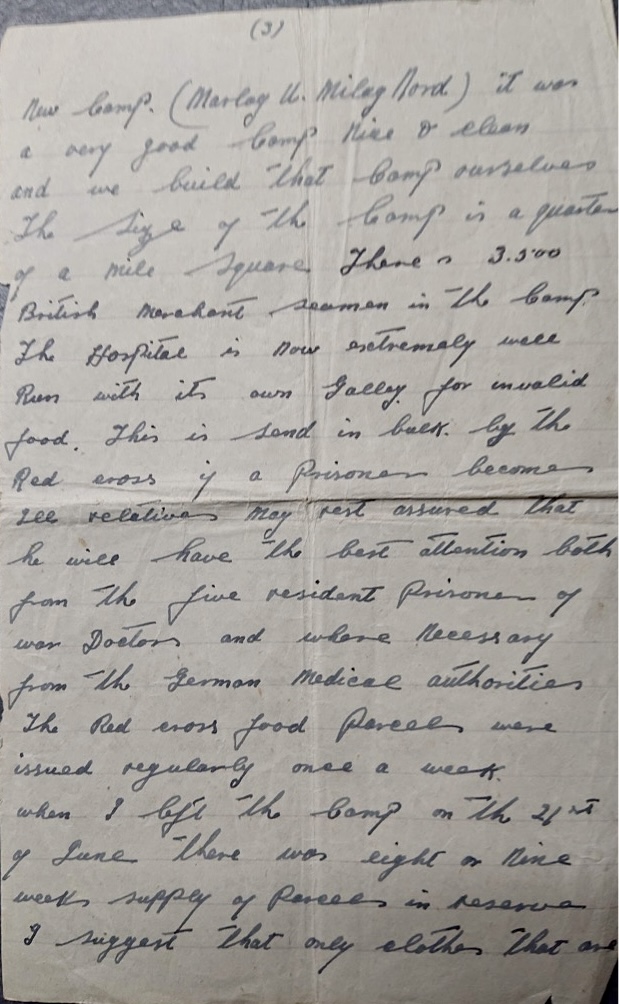 (3)
New Camp. (Marlag U. Milag Nord) it was
a very good Camp Nice & clean
and we build that Camp ourselves
The Size of the Camp is a quarter
of a mile Square There is 3.500
British Merchant seamen in the Camp.
The Hospital is now extremely well
Run with its own Galley for invalid
food. This is send in bulk. by the
Red cross if a Prisoner becomes
ill relatives may rest assured that
he will have the best attention both
from the five resident Prisoner of
war Doctors and where Necessary
from the German Medical authorities
The Red cross food Parcels were
issued regularly once a week.
when I left the Camp on the 21st
of June there was eight or Nine
weeks supply of Parcels in reserve
I suggest that only clothes that are